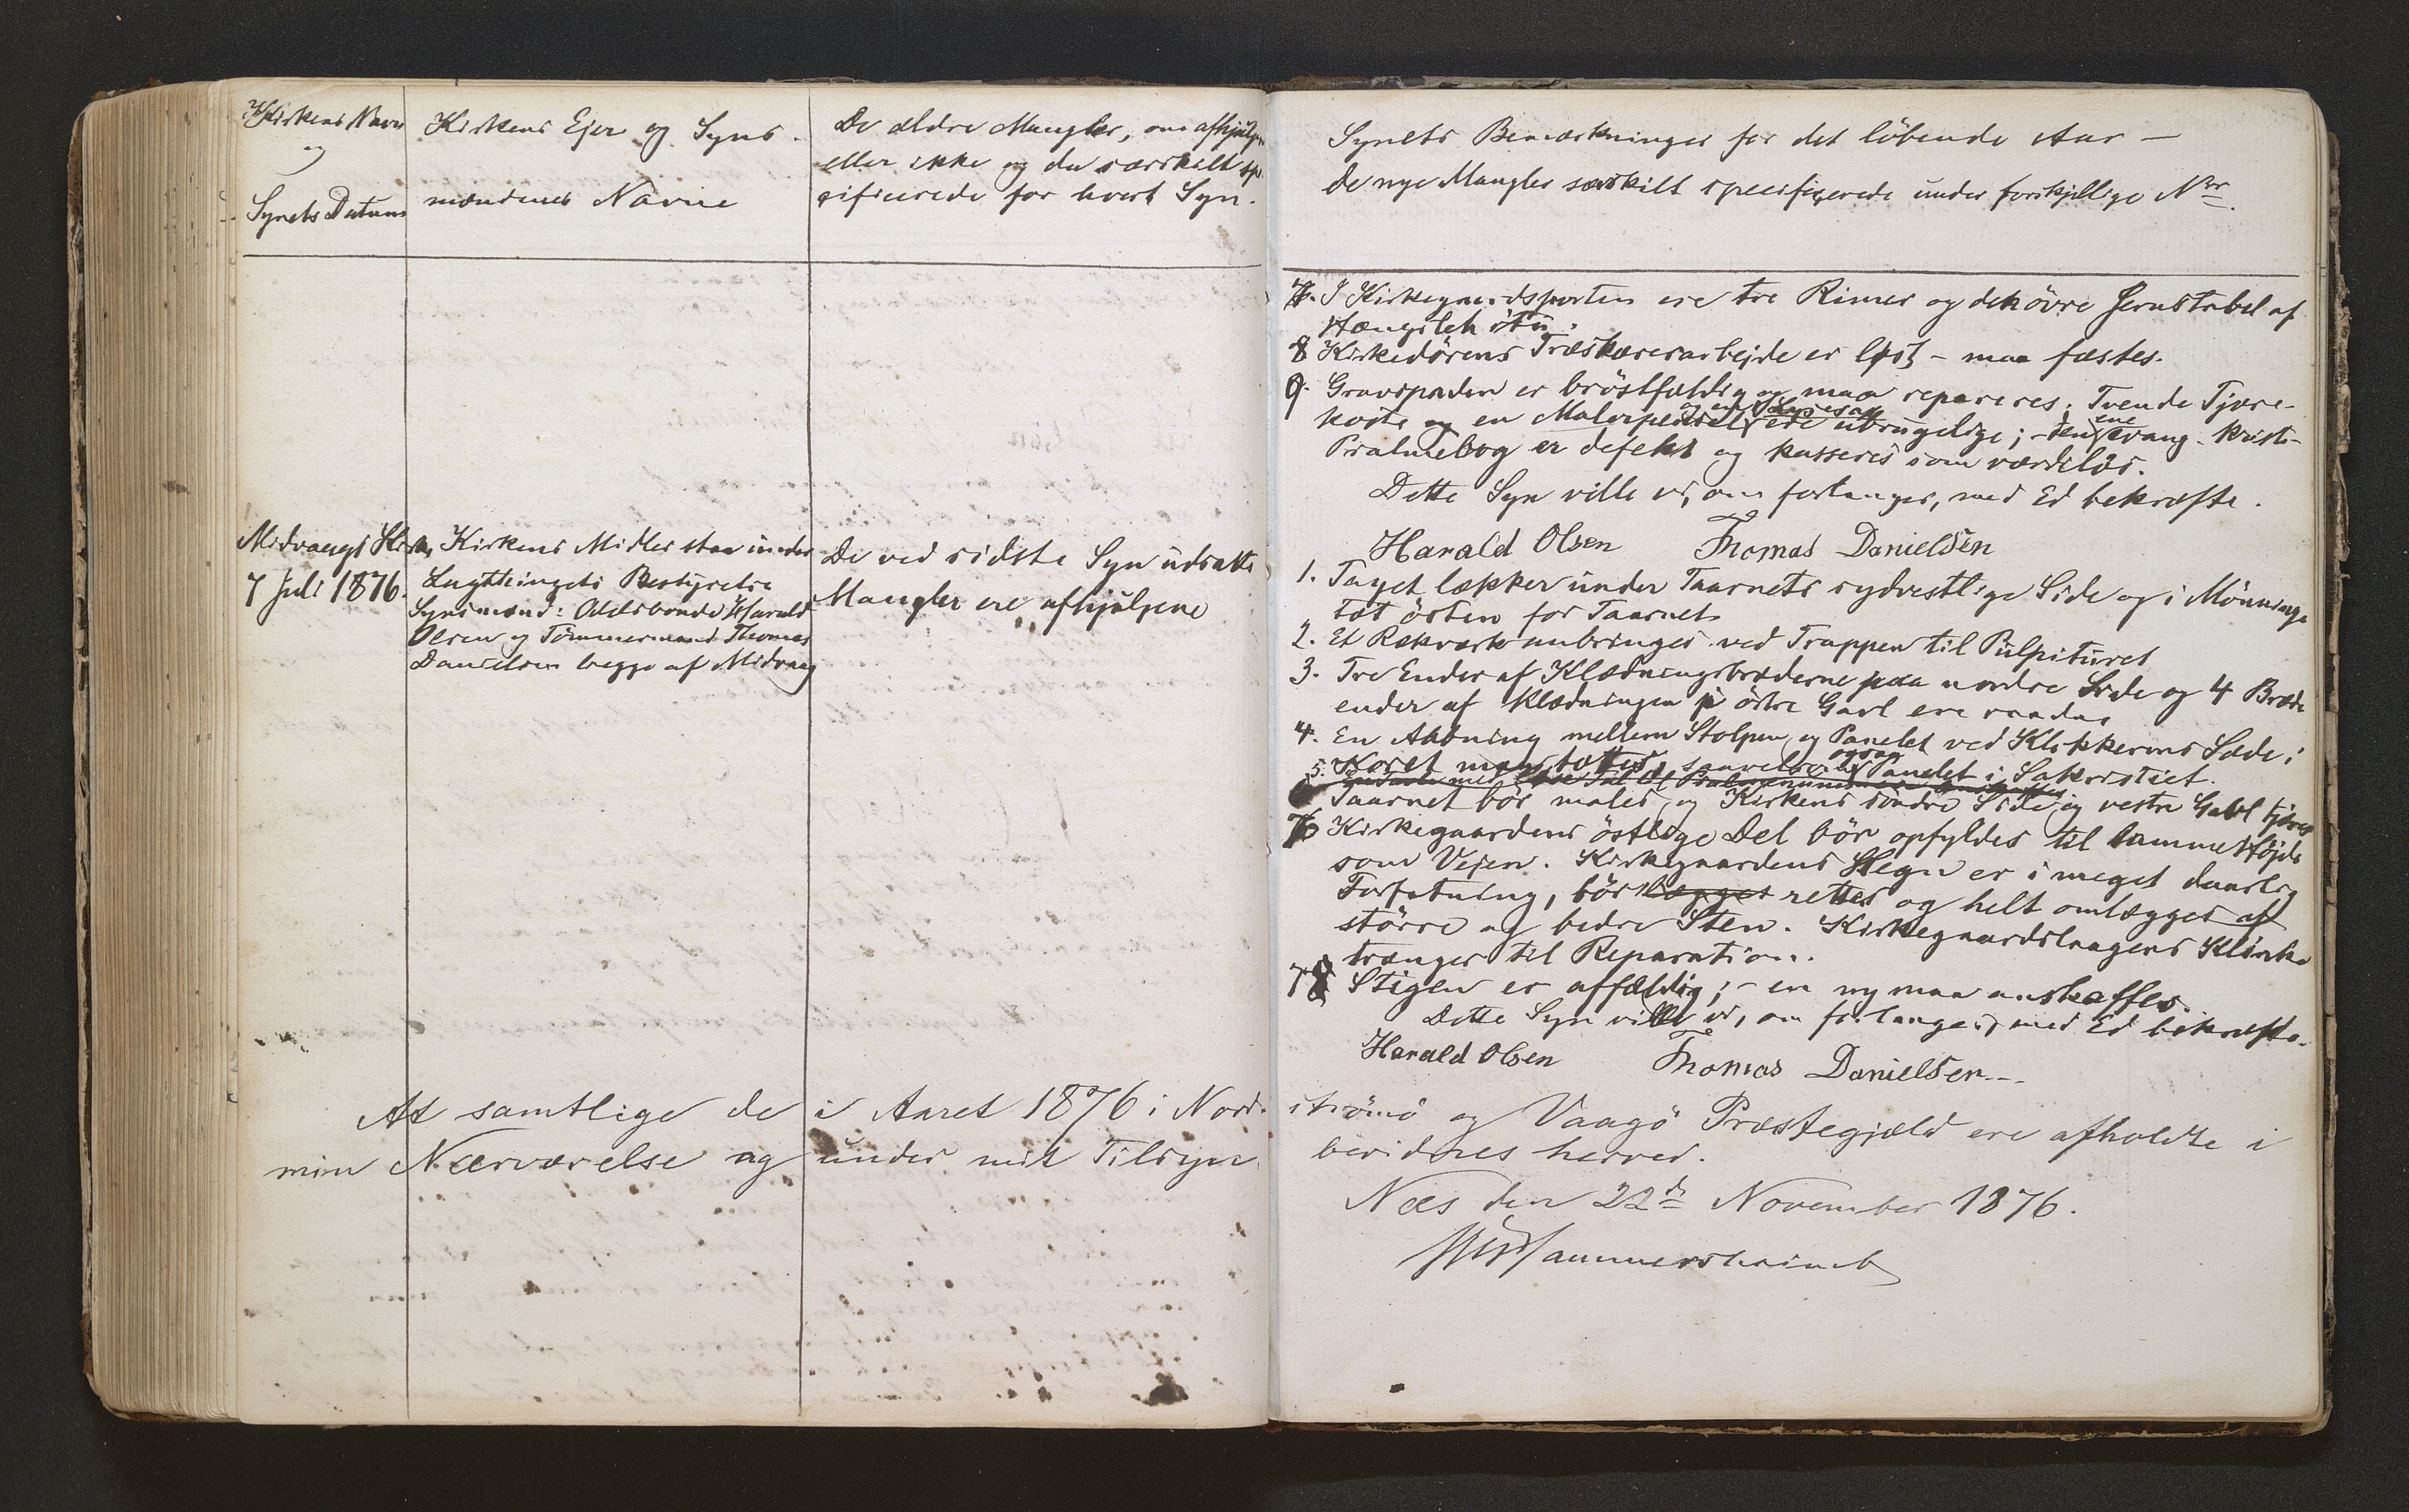 Kirkens Navn
og
Synets Datum
Kirkens Ejer og Syns-
mændenes Navne
De ældre Mangler, om afhjulpne
eller ikke og da særskilt spe-
cificerede for hvert Syn.
Midvaags Kirke
7 Juli 1876.
Kirkens Midler staa under
Lagthingets Bestyrelse
Synsmænd: Odelsbonde Harald
Olsen og Tömmermand Thomas
Danielsen begge af Midvaag
De ved sidste Syn udsatte
Mangler ere afhjulpne
At samtlige de i Aaret 1876 i Nord-
min Nærværelse og under mit Tilsyn
Synets Bemærkninger for det löbende Aar —
De nye Mangler særskilt specificerede under forskjellige Nr.
7. I Kirkegaardsporten ere tre Rimer og det övre Jernstabel af
Hængslet itu.
8 Kirkedörens Træskærerarbejde er löst - maa fæstes.
9. Gravspaden er bröstfældig og maa repareres; Tvende Tjære-
koste og en Malerpensel ere ubrugelige; - den ene evang. krist-
Psalmebog er defekt og kasseres som værdilös.
Dette Syn ville vi, om forlanges, med Ed bekræfte.
Harald Olsen Thomas Danielsen
1. Taget lækker under Taarnets sydvestlige Side og i Mönninge
tæt östen for Taarnet
2. Et Rækværk anbringes ved Trappen til Pulpituret
3. Tre Ender af Klædningsbræderne paa nordre Side og 4 Bræde
ender af Klædningen p östre Gavl ere raadne
4. En Aabning mellem Stolpen og Panelet ved Klokkerens Sæde i
Koret maa tættes, saavelsom ogsaa Panelet i Sakristiet.
5. Taarnet bör males, og Kirkens söndre Side og vestre Gavl tjæres
6 Kirkegaardens östlige Del bör opfyldes til samme Höjde
som Vejen. Kirkegaardens Hegn er i meget daarlig
Forfatning, bör lægges rettes og helt omlægges af
större og bedre Sten. Kirkegaardslaagens Klinke
trænger til Reparation.
7 Stigen er affældig; - en ny maa anskaffes.
Dette Syn ville vi, om forlanges, med Ed bekræfte.
Harald Olsen Thomas Danielsen
strömö og Vaagö Præstegjæld ere afholdte i
bevidnes herved.
Næs den 22de November 1876.
Hammershaimb